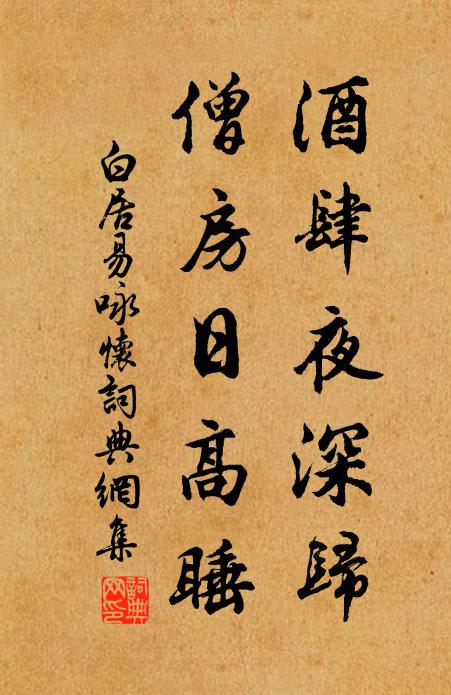 酒肆夜深歸
僧房日高睡
白居易詠懷詞典網集
詞典網印